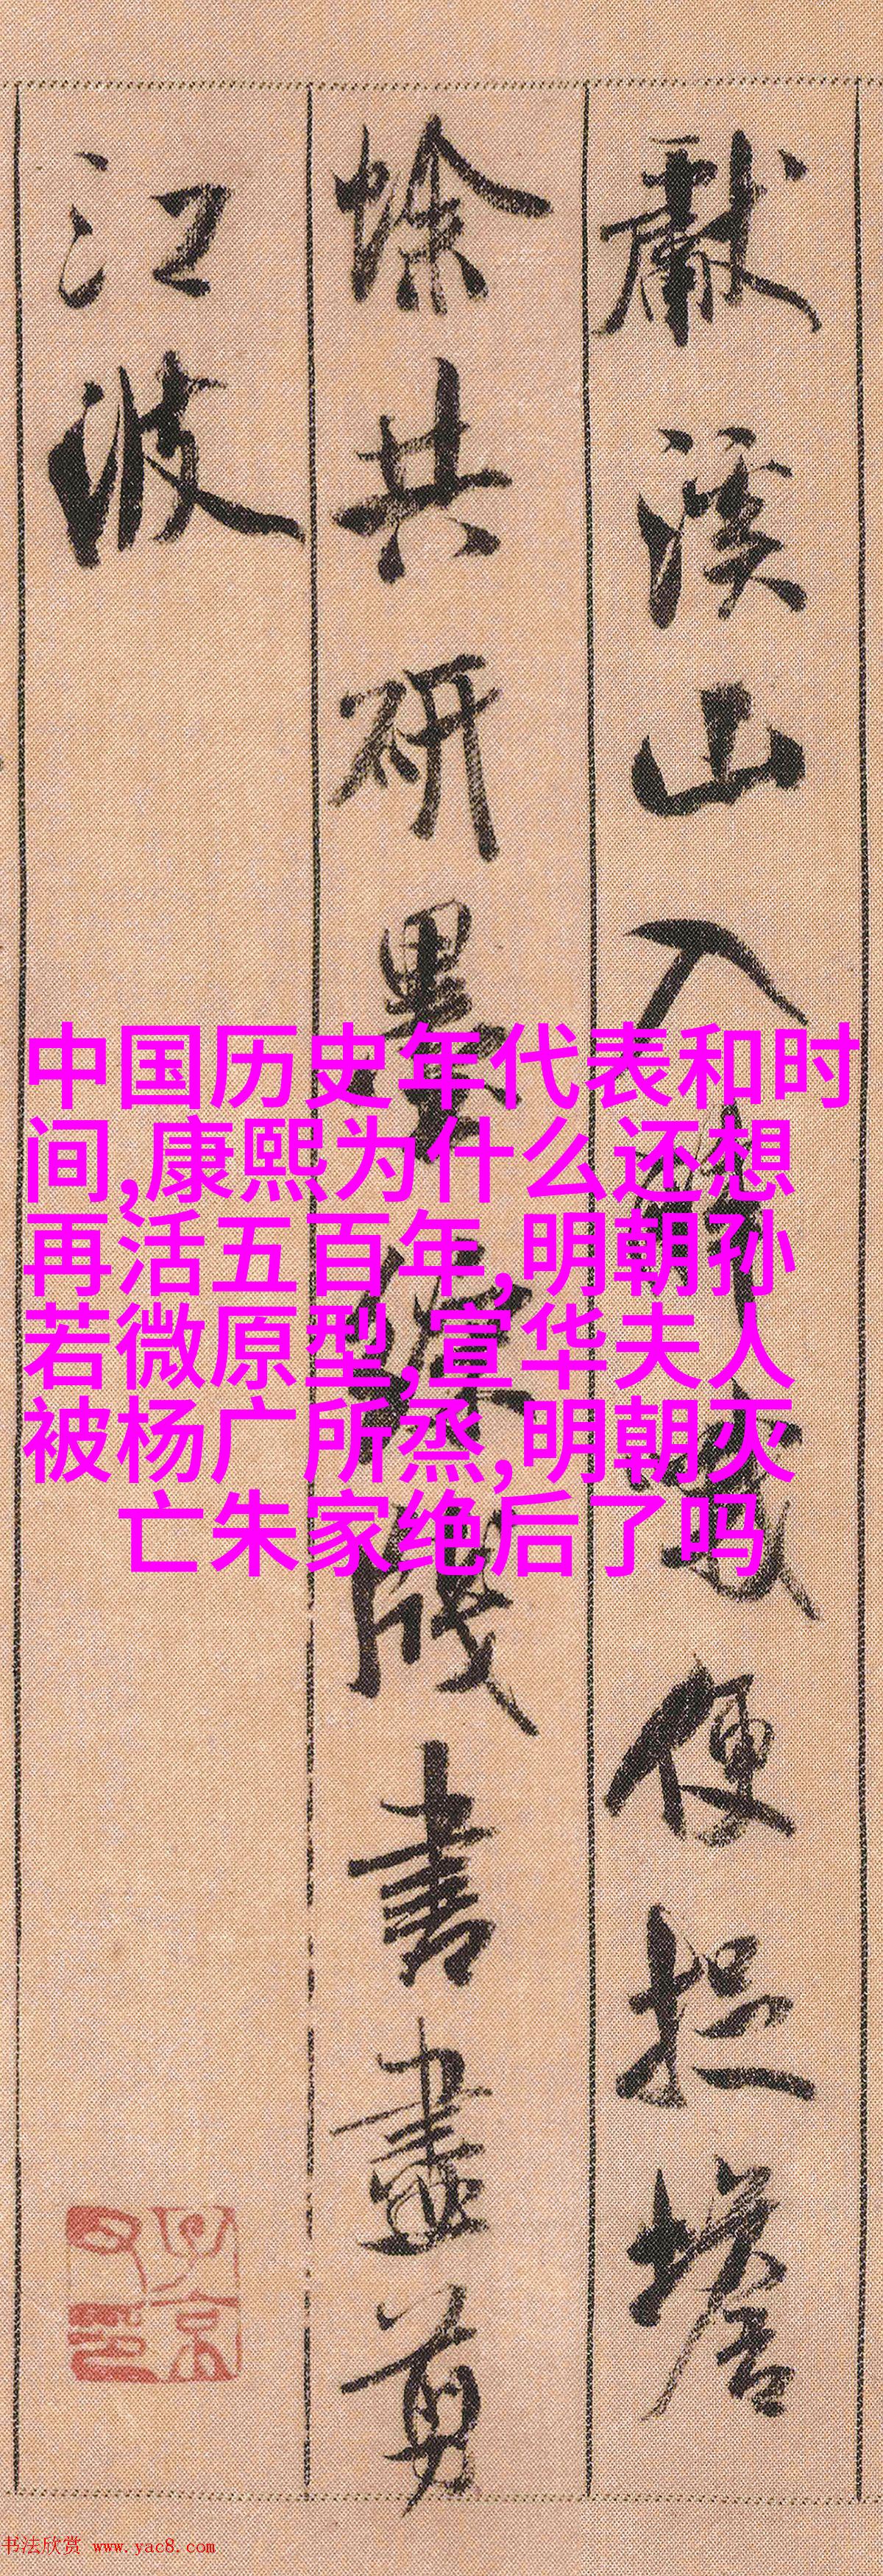 獻溪山入醉哦便捉蟾
蜍共研墨綵牋書盡剪
江波
中国历史年代表和时
间,康熙为什么还想
再活五百年,明朝孙
若微原型,宣华夫人
被杨广所烝,明朝灭
亡朱家绝后了吗
书法欣赏 www.yac8.com